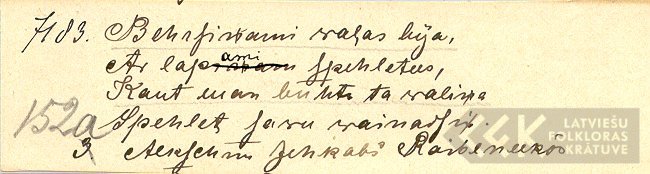 7183. Behrsiņami waļas bija,
Ar lapami spehletees,
Kaut man buhtu ta waliņa
152a Spehlet sawu wainadsiņ.
3 Aekschin Jehkabs Raibeneekōs
LATVIEŠU
FOLKLORAS
KRĀTUVE